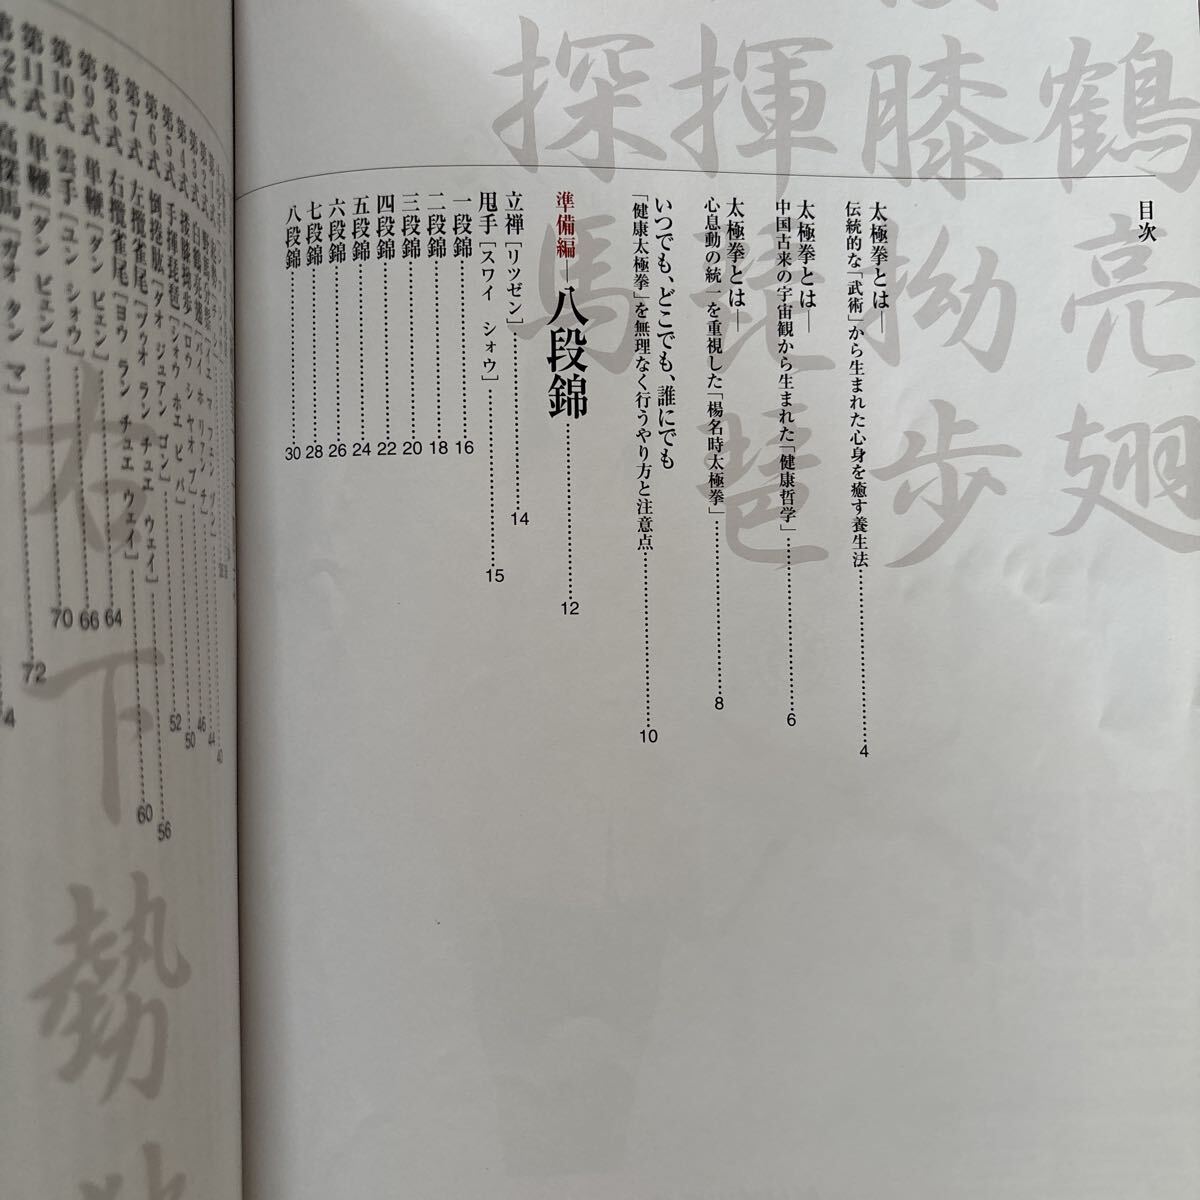 目次
太極拳とは―
伝統的な「武術」から生まれた心身を癒す養生法……4
太極拳とは―
中国古来の宇宙観から生まれた「健康哲学」……6
太極拳とは―
心息動の統一を重視した「楊名時太極拳」……8
いつでも、どこでも、誰にでも
「健康太極拳」を無理なく行うやり方と注意点……10
準備編―八段錦……12
立禅［リツゼン］……14
甩手［スワイ ショウ］……15
一段錦……16
二段錦……18
三段錦……20
四段錦……22
五段錦……24
六段錦……26
七段錦……28
八段錦……30
鶴亮翅
膝拗歩
揮琵琶
探馬
第5式 手揮琵琶［ショウ ホエ ピ パ］……52
第6式 倒捲肱［ダオ ジュアン ゴン］……56
第7式 左攬雀尾［ヅゥオ ラン チュエ ウェイ］……60
第8式 右攬雀尾［ヨウ ラン チュエ ウェイ］……64
第9式 単鞭［ダン ビェン］……66
第10式 雲手［ユン ショウ］……70
第11式 単鞭［ダン ビェン］……72
高探馬［ガオ タン マ］
右下勢